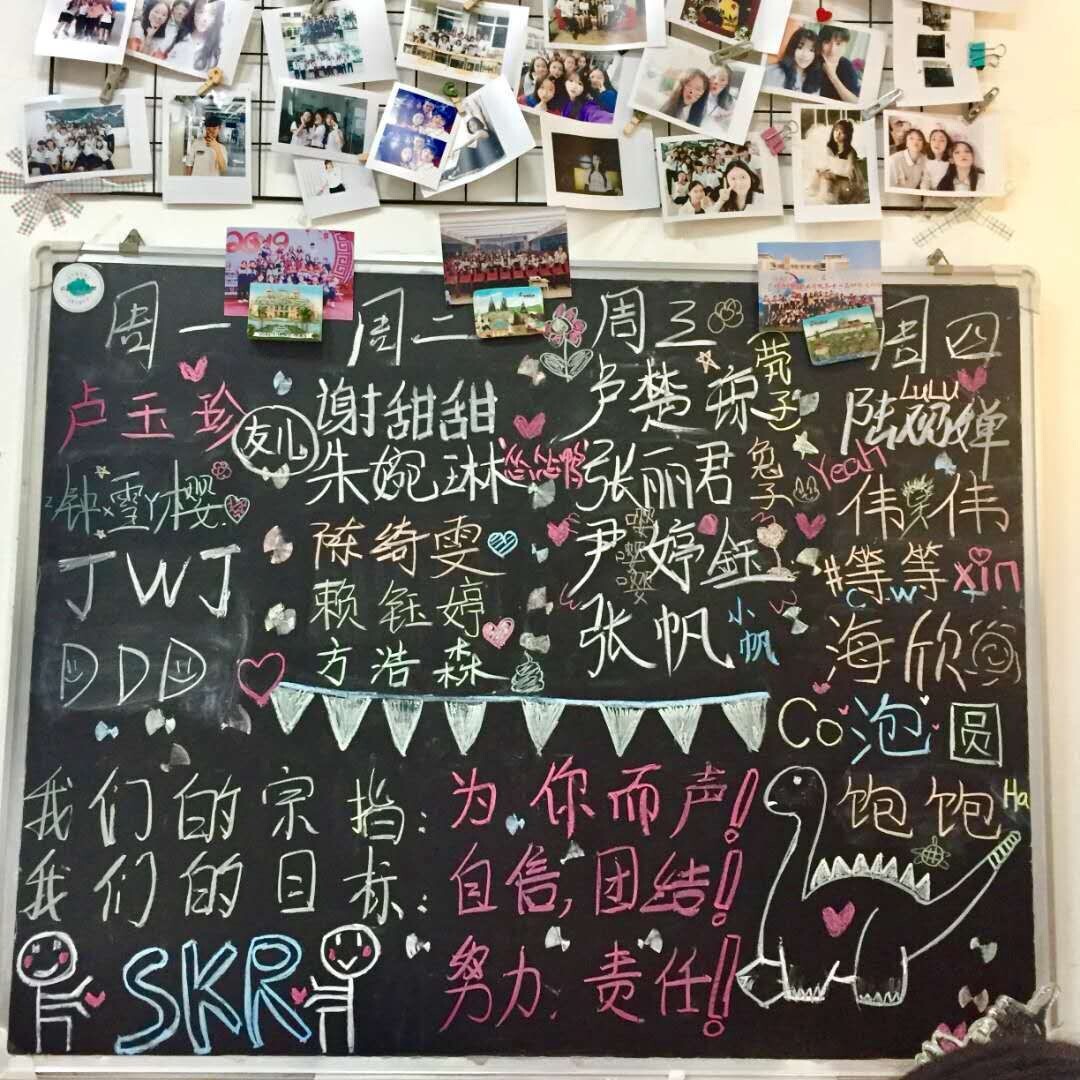 周一
卢玉珍
友儿
钟雪樱
JWJ
DDD
周二
谢甜甜
朱婉琳怂怂鸭
陈绮雯
赖钰婷
方浩森
周三
卢楚琼
茕子
张丽君
兔子
尹婷钰
嘤嘤嘤
张帆
小帆
周四
LuLu
陆婵
Yeah
伟笑伟
#等等xin
C.W.T
海欣
Co泡圆
饱饱Ha
我们的宗挡：为你而声！
我们的目标：自信，团结！
努力，责任！
SKR
2019